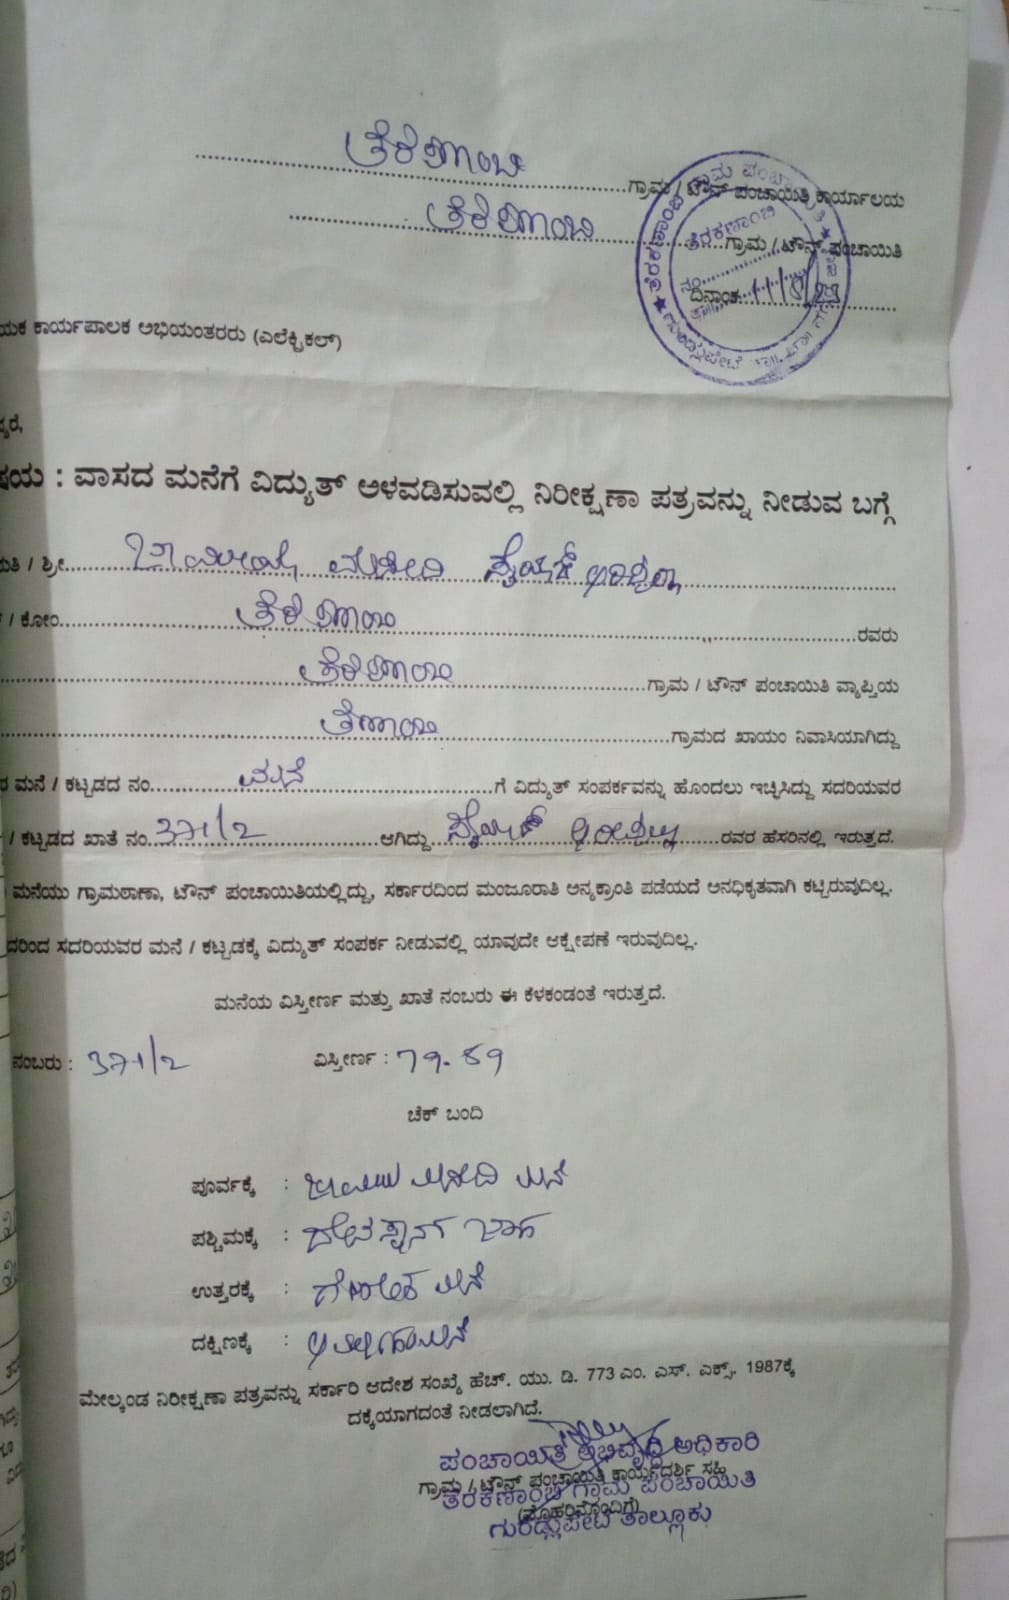 ತೆರಕಣಾಂಬಿ
ಗ್ರಾಮ / ಟೌನ್ ಪಂಚಾಯಿತಿ ಕಾರ್ಯಾಲಯ
ತೆರಕಣಾಂಬಿ
ಗ್ರಾಮ / ಟೌನ್ ಪಂಚಾಯಿತಿ
ದಿನಾಂಕ
ಯಕ ಕಾರ್ಯಪಾಲಕ ಅಭಿಯಂತರರು (ಎಲೆಕ್ಟ್ರಿಕಲ್)
ರೆ,
ಷಯ : ವಾಸದ ಮನೆಗೆ ವಿದ್ಯುತ್ ಅಳವಡಿಸುವಲ್ಲಿ ನಿರೀಕ್ಷಣಾ ಪತ್ರವನ್ನು ನೀಡುವ ಬಗ್ಗೆ
ಮತಿ / ಶ್ರೀ ಜಾಮೀಯ ಮಸೀದಿ
/ ಕೋಂ ತೆರಕಣಾಂಬಿ ರವರು
ತೆರಕಣಾಂಬಿ ಗ್ರಾಮ / ಟೌನ್ ಪಂಚಾಯಿತಿ ವ್ಯಾಪ್ತಿಯ
ಗ್ರಾಮದ ಖಾಯಂ ನಿವಾಸಿಯಾಗಿದ್ದು
ರ ಮನೆ / ಕಟ್ಟಡದ ನಂ. ಮನೆ ಗೆ ವಿದ್ಯುತ್ ಸಂಪರ್ಕವನ್ನು ಹೊಂದಲು ಇಚ್ಛಿಸಿದ್ದು ಸದರಿಯವರ
/ ಕಟ್ಟಡದ ಖಾತೆ ನಂ. 371/2 ಆಗಿದ್ದು ರವರ ಹೆಸರಿನಲ್ಲಿ ಇರುತ್ತದೆ.
ಮನೆಯು ಗ್ರಾಮಠಾಣಾ, ಟೌನ್ ಪಂಚಾಯಿತಿಯಲ್ಲಿದ್ದು, ಸರ್ಕಾರದಿಂದ ಮಂಜೂರಾತಿ ಅನ್ಯಕ್ರಾಂತಿ ಪಡೆಯದೆ ಅನಧಿಕೃತವಾಗಿ ಕಟ್ಟಿರುವುದಿಲ್ಲ.
ದರಿಂದ ಸದರಿಯವರ ಮನೆ / ಕಟ್ಟಡಕ್ಕೆ ವಿದ್ಯುತ್ ಸಂಪರ್ಕ ನೀಡುವಲ್ಲಿ ಯಾವುದೇ ಆಕ್ಷೇಪಣೆ ಇರುವುದಿಲ್ಲ.
ಮನೆಯ ವಿಸ್ತೀರ್ಣ ಮತ್ತು ಖಾತೆ ನಂಬರು ಈ ಕೆಳಕಂಡಂತೆ ಇರುತ್ತದೆ.
ನಂಬರು : 371/2 ವಿಸ್ತೀರ್ಣ : 79.89
ಚೆಕ್ ಬಂದಿ
ಪೂರ್ವಕ್ಕೆ : ಜಾಮಿಯ ಮಸೀದಿ ಮನೆ
ಪಶ್ಚಿಮಕ್ಕೆ : ದೇವಸ್ಥಾನ್ ಜಾಗ
ಉತ್ತರಕ್ಕೆ : ಮನೆ
ದಕ್ಷಿಣಕ್ಕೆ : ಮನೆ
ಮೇಲ್ಕಂಡ ನಿರೀಕ್ಷಣಾ ಪತ್ರವನ್ನು ಸರ್ಕಾರಿ ಆದೇಶ ಸಂಖ್ಯೆ ಹೆಚ್. ಯು. ಡಿ. 773 ಎಂ. ಎಸ್. ಎಕ್ಸ್. 1987ಕ್ಕೆ
ದಕ್ಕೆಯಾಗದಂತೆ ನೀಡಲಾಗಿದೆ.
ಪಂಚಾಯಿತಿ ಅಭಿವೃದ್ಧಿ ಅಧಿಕಾರಿ
ಗ್ರಾಮ / ಟೌನ್ ಪಂಚಾಯಿತಿ ಕಾರ್ಯದರ್ಶಿ ಸಹಿ
ತೆರಕಣಾಂಬಿ ಗ್ರಾಮ ಪಂಚಾಯಿತಿ
(ಮೊಹರಿನೊಂದಿಗೆ)
ಗುಂಡ್ಲುಪೇಟೆ ತಾಲ್ಲೂಕು